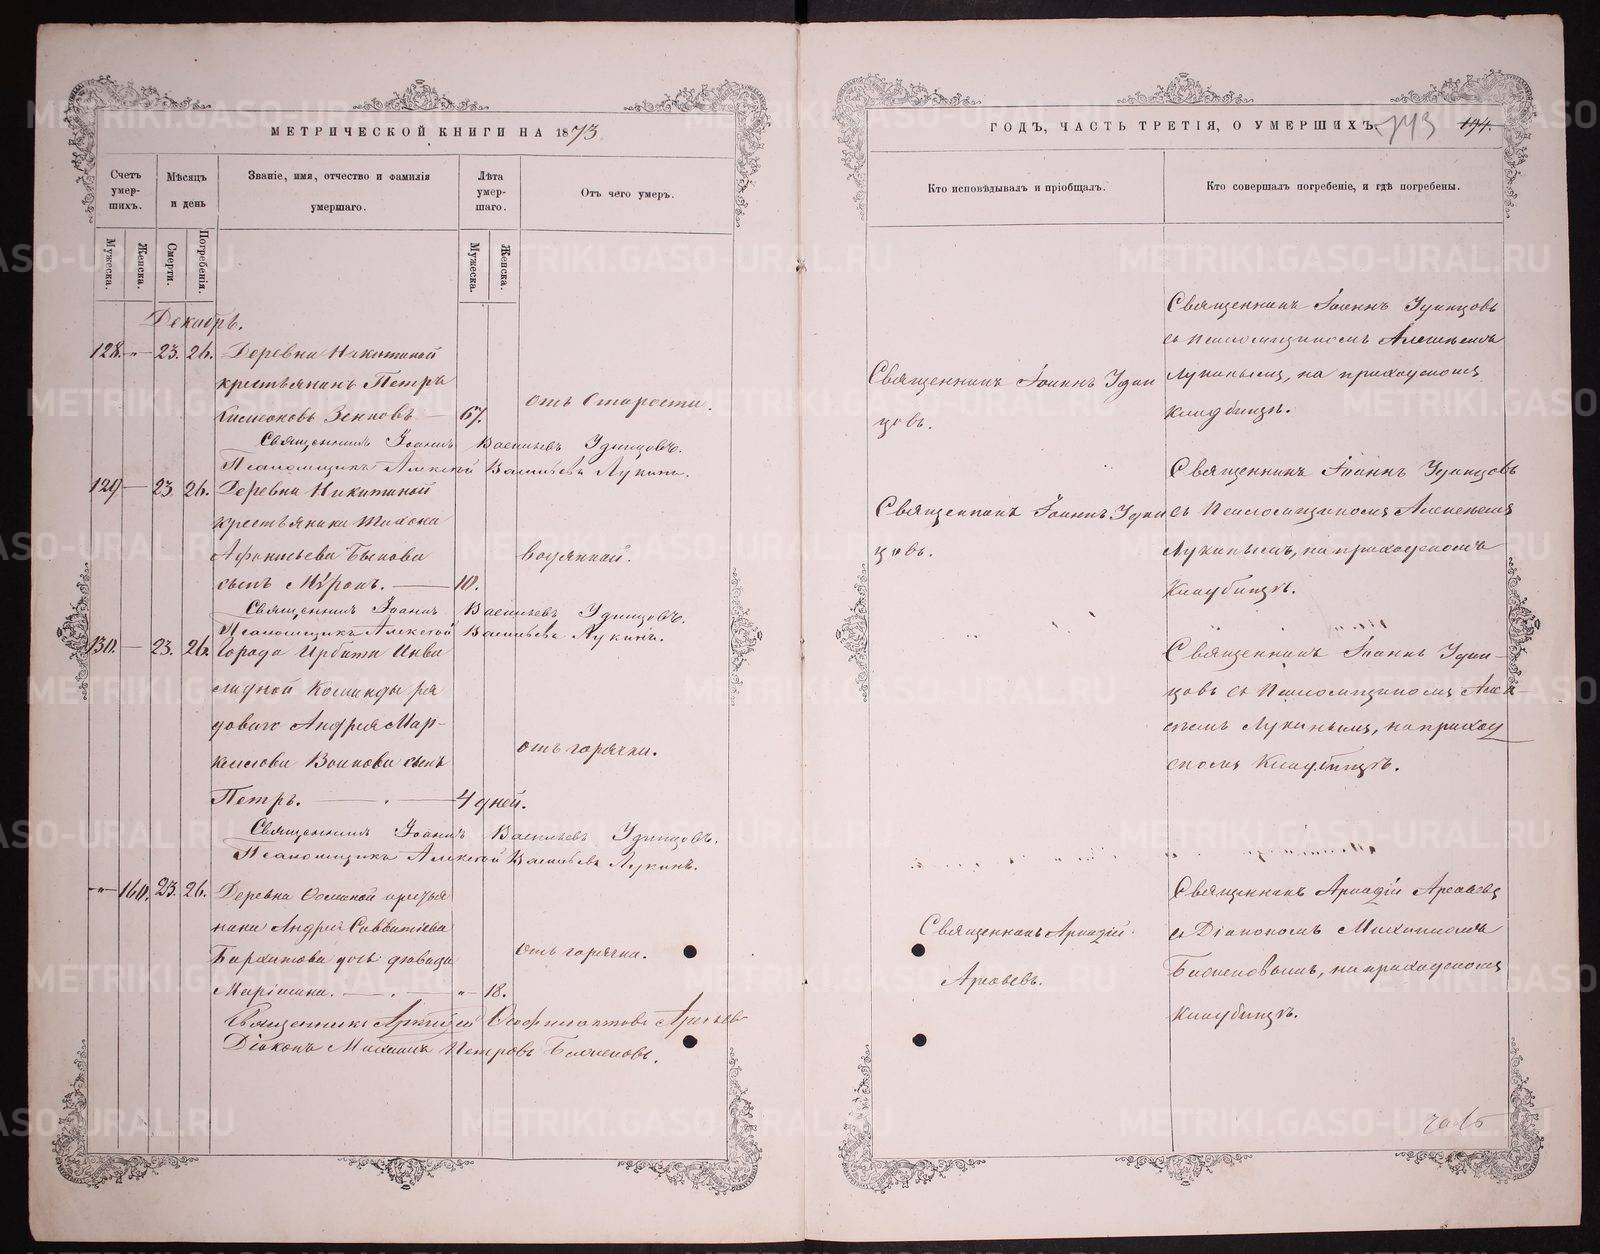 МЕТРИЧЕСКОЙ КНИГИ НА 1873
Счетъ умер-шихъ.
Мѣсяцъ и день
Званіе, имя, отчество и фамилія умершаго.
Лѣта умер-шаго.
Отъ чего умеръ.
Мужеска.
Женска.
Смерти.
Погребенія.
Мужеска.
Женска.
Декабрь.
128. „ — 23. 26. Деревни Никитиной
крестьянинъ Петръ
Зенковъ — 67.
отъ Старости.
Священникъ Іоаннъ Васильевъ Удинцовъ.
Псаломщикъ Алексѣй Васильевъ Лукинъ.
129 — 23. 26. Деревни Никитиной
крестьянина Тихона
Афонасьева Быкова
сынъ Мѵронъ. — 10.
водянкой.
Священникъ Іоаннъ Васильевъ Удинцовъ.
Псаломщикъ Алексѣй Васильевъ Лукинъ.
130. — 23. 26. Города Ирбити Инва
лидной Команды ря
доваго Андрея Мар-
келлова Воинова сынъ
Петръ. — 4 дней.
отъ горячки.
Священникъ Іоаннъ Васильевъ Удинцовъ.
Псаломщикъ Алексѣй Васильевъ Лукинъ.
— „ — 160. 23. 26. Деревни крестья
нина Андрея Савватіева
Бархатова дочь дѣвица
Маріамна. — „ — 18.
отъ горячки.
Священникъ Аркадій Ѳеофилактовъ Арефьевъ
Діаконъ Михаилъ Петровъ
ГОДЪ, ЧАСТЬ ТРЕТІЯ, О УМЕРШИХЪ.
743
194.
Кто исповѣдывалъ и пріобщалъ.
Кто совершалъ погребеніе, и гдѣ погребены.
Священникъ Іоаннъ Удин
цовъ.
Священникъ Іоаннъ Удинцовъ
съ Псаломщикомъ Алексѣемъ
Лукинымъ, на приходскомъ
кладбищѣ.
Священникъ Іоаннъ Удин
цовъ.
Священникъ Іоаннъ Удинцовъ
съ Псаломщикомъ Алексѣемъ
Лукинымъ, на приходскомъ
Кладбищѣ.
Священникъ Іоаннъ Удин-
цовъ съ Псаломщикомъ Алек-
сѣемъ Лукинымъ, на приход
скомъ Кладбищѣ.
Священникъ Аркадій
Арефьевъ.
Священникъ Аркадій Арефьевъ
съ Діакономъ Михаиломъ
на приходскомъ
Кладбищѣ.
METRIKI.GASO-URAL.RU